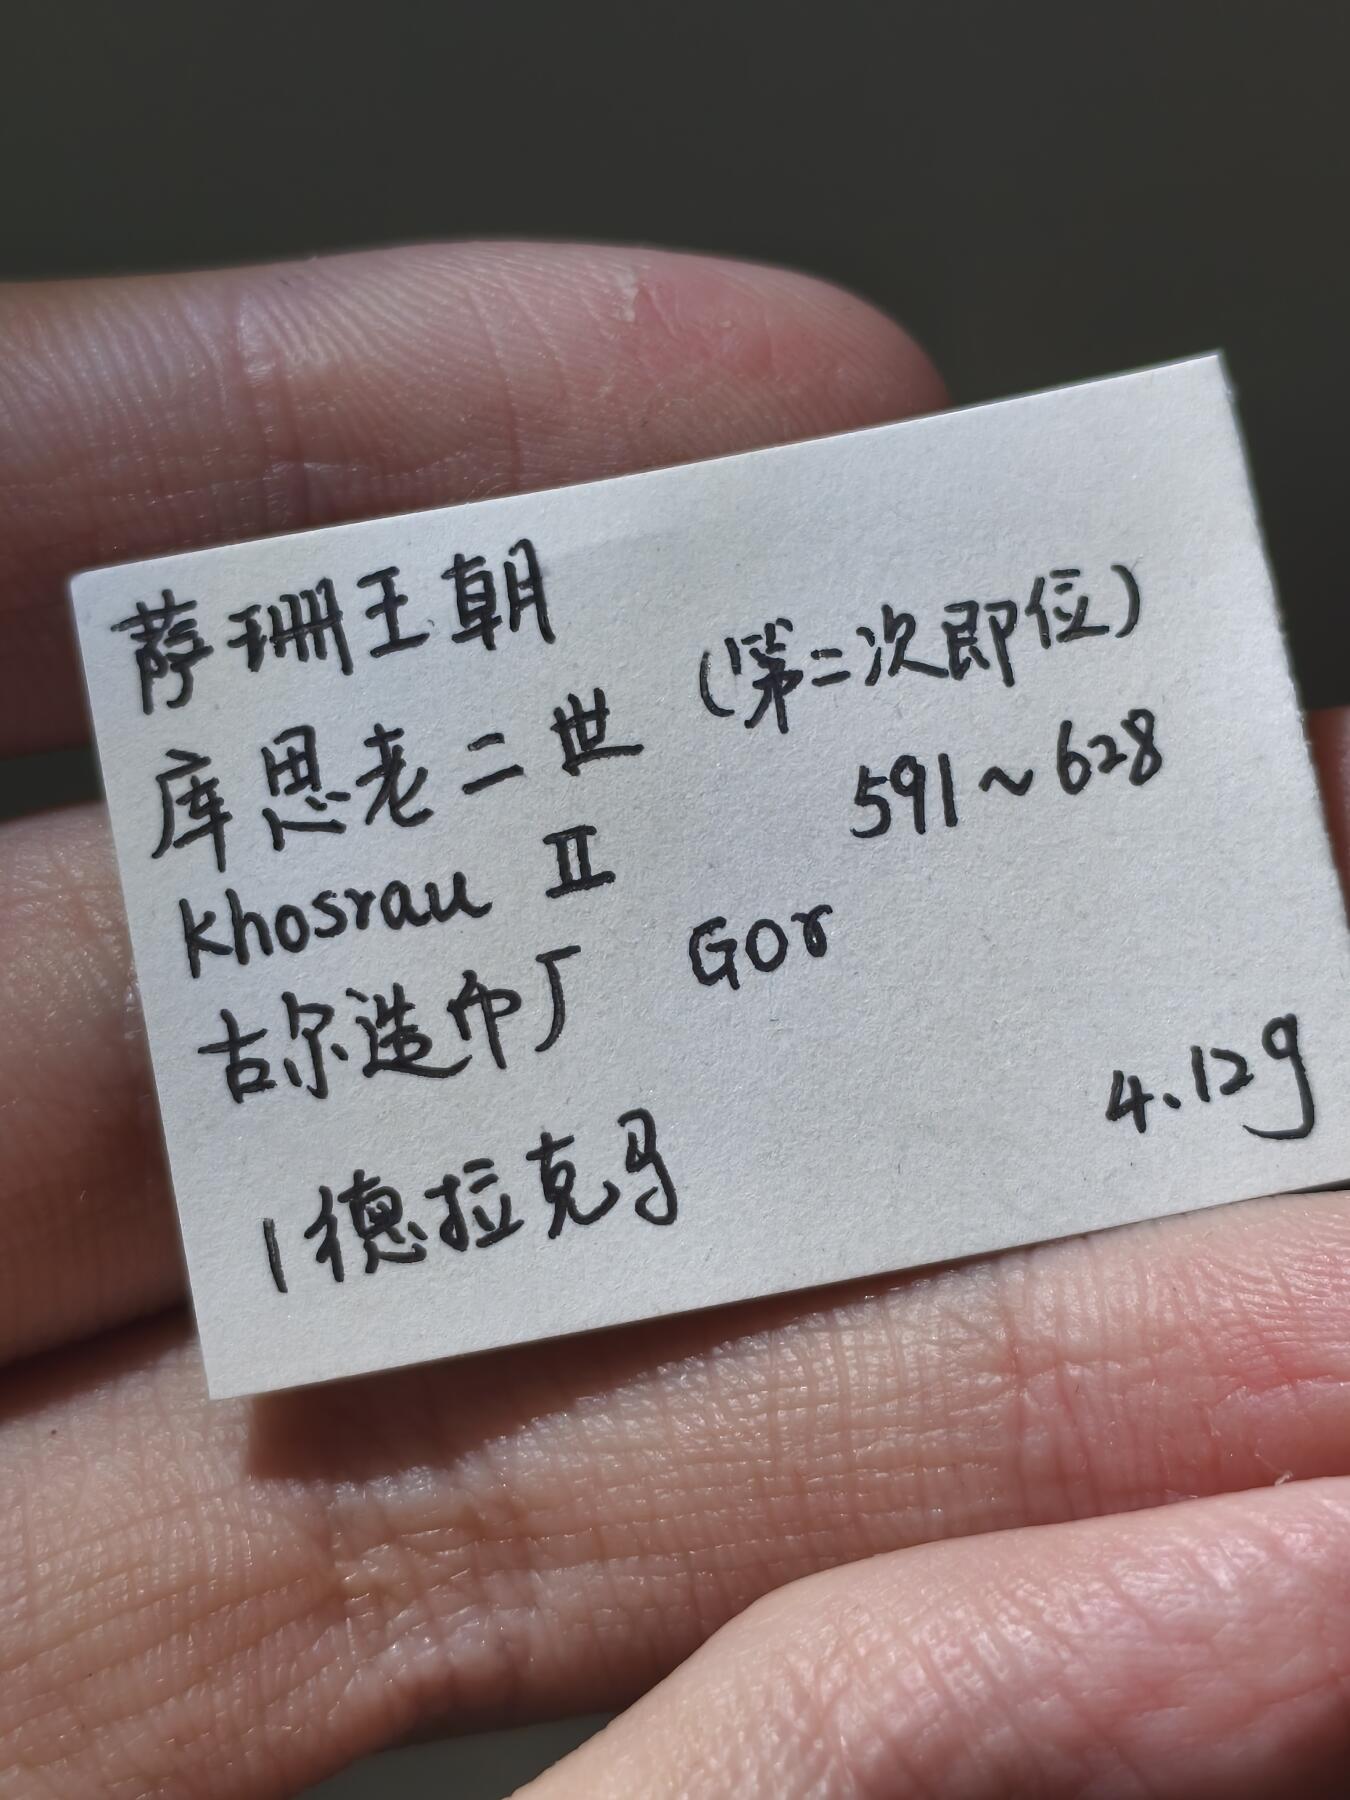 萨珊王朝
库思老二世 (第二次即位)
Khosrau II 591~628
古尔造币厂 GOr
1德拉克马 4.12g